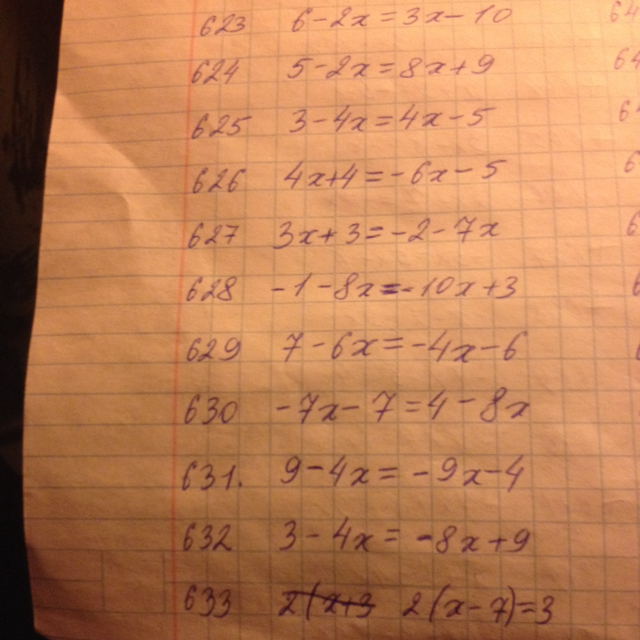 623 6-2x=3x-10
624 5-2x=8x+9
625 3-4x=4x-5
626 4x+4=-6x-5
627 3x+3=-2-7x
628 -1-8x=-10x+3
629 7-6x=-4x-6
630 -7x-7=4-8x
631. 9-4x=-9x-4
632 3-4x=-8x+9
633 2(x+3 2(x-7)=3